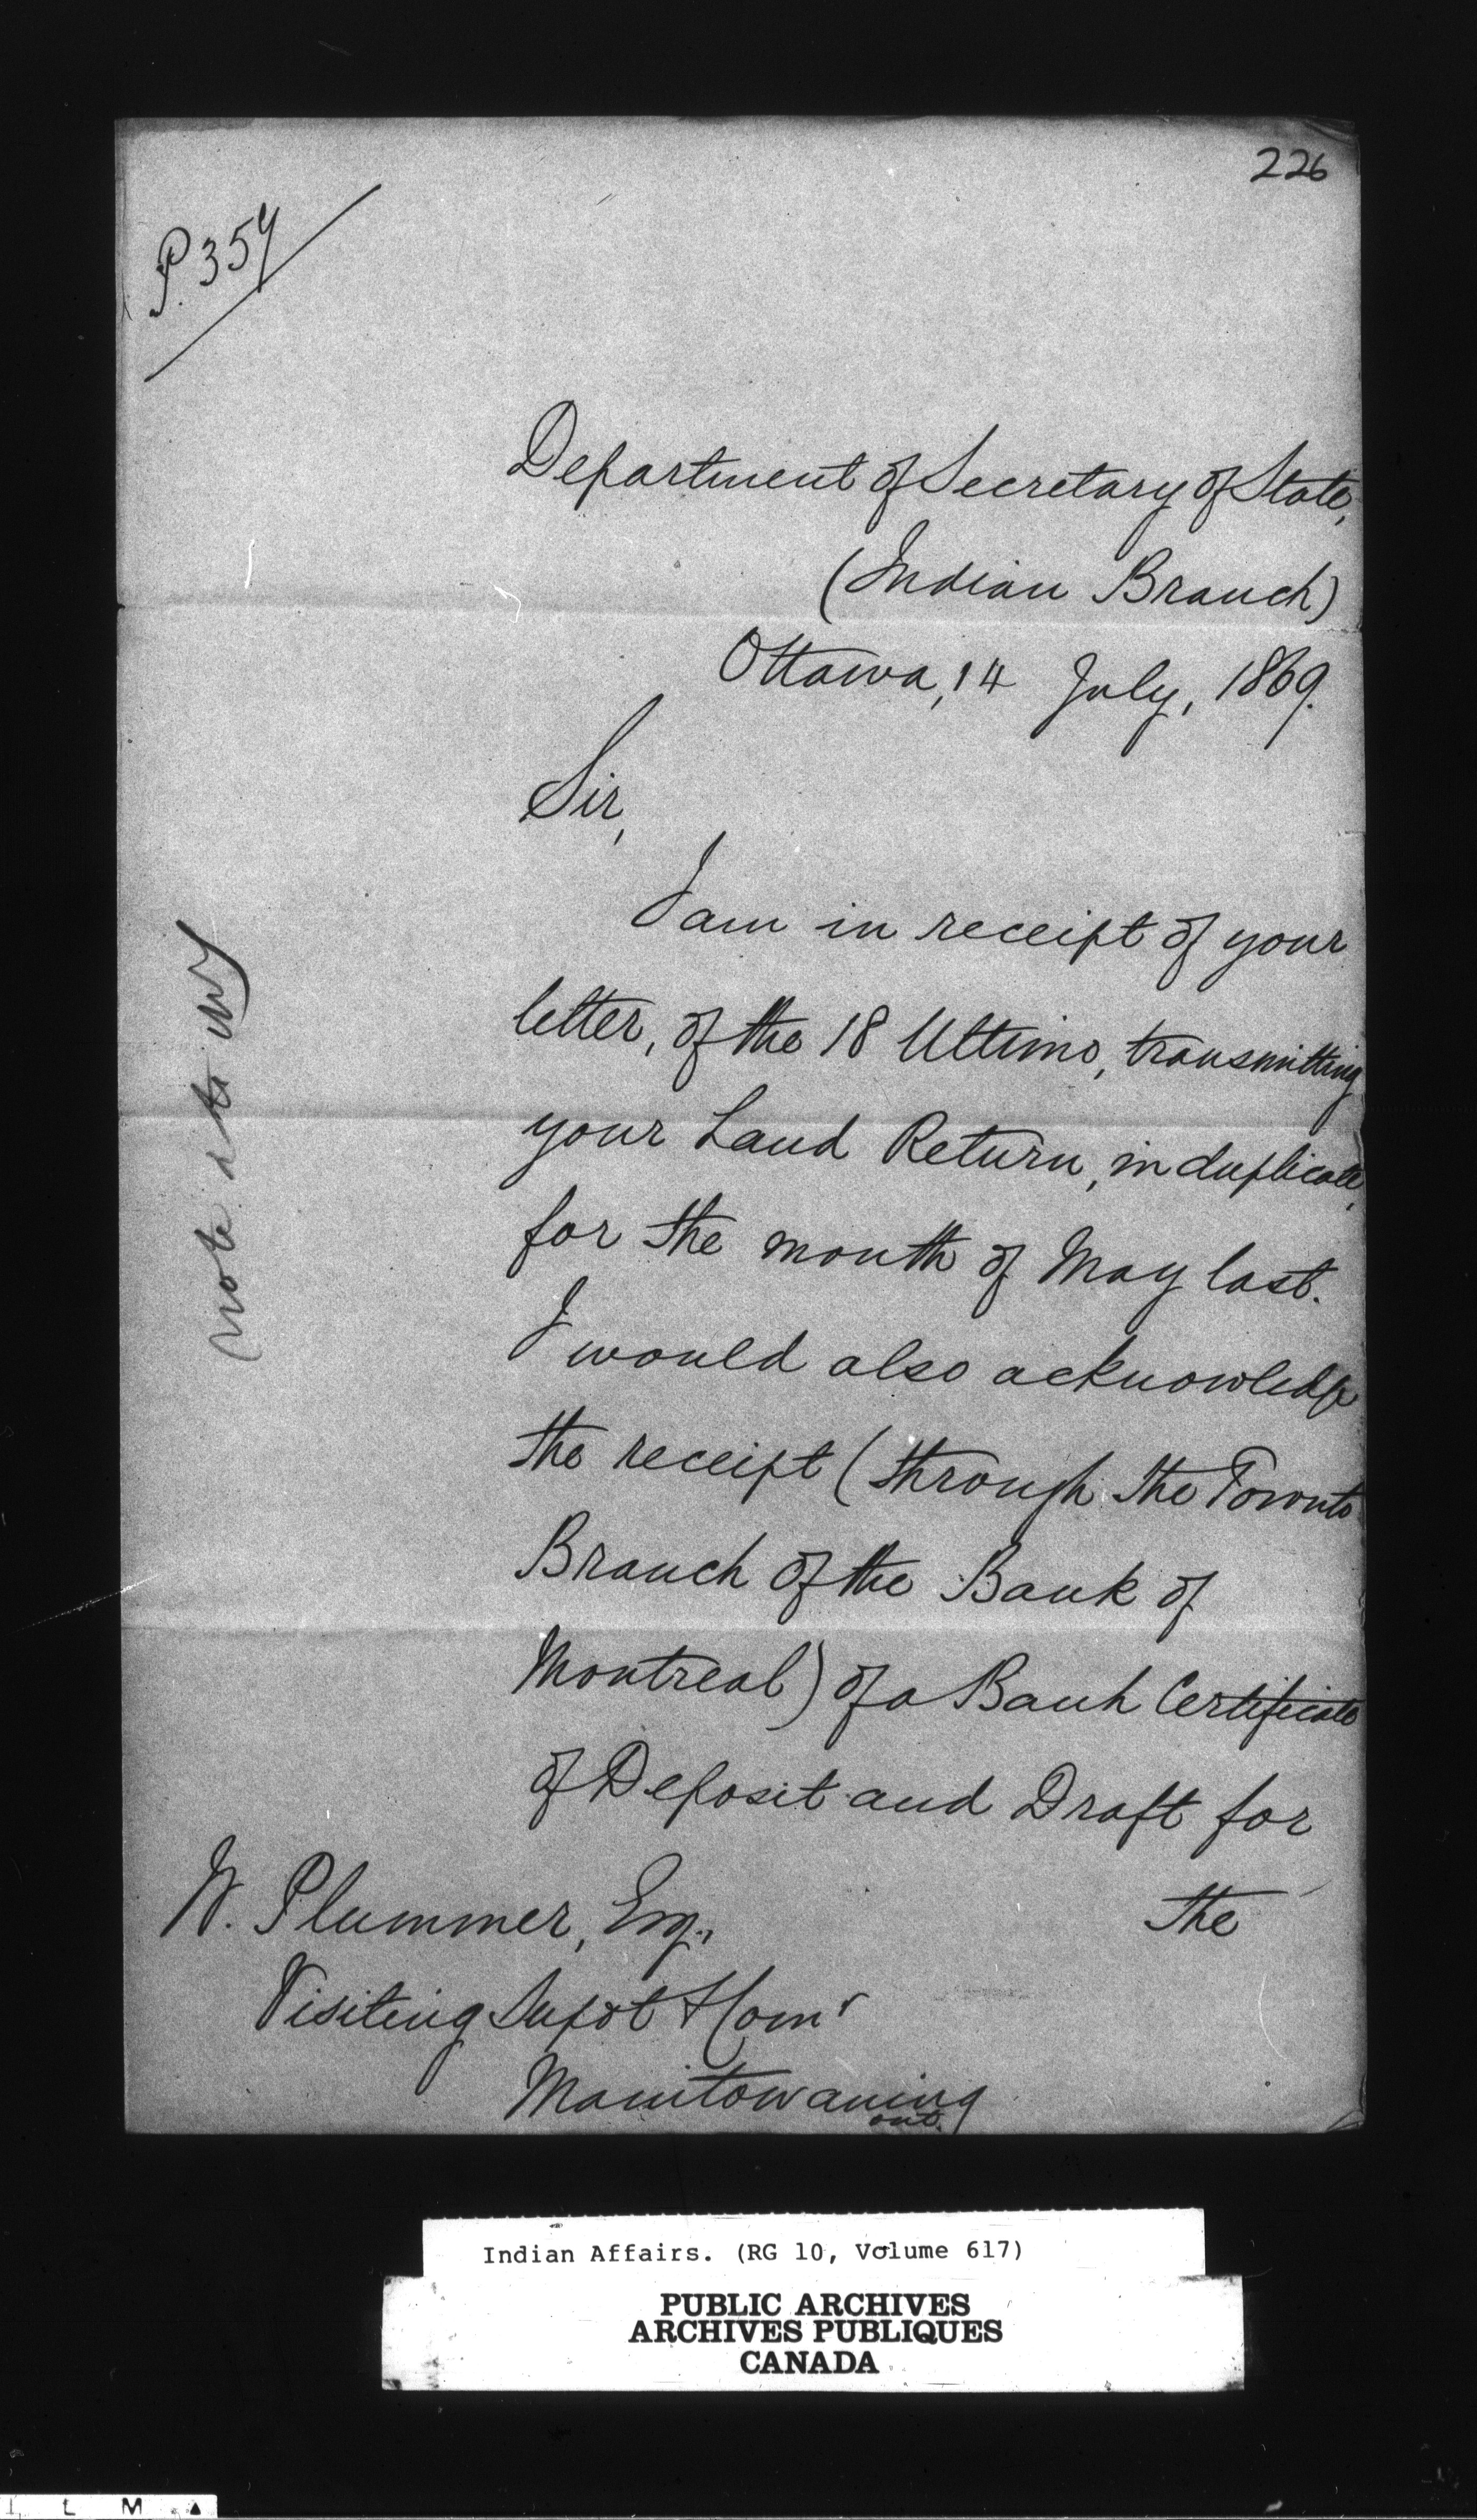 226
P. 357
Department of Secretary of State,
(Indian Branch)
Ottawa, 14 July, 1869.
Sir,
I am in receipt of your
letter, of the 18 Ultimo, transmitting
your Land Return, in duplicate,
for the month of May last.
I would also acknowledge
the receipt (through the Toronto
Branch of the Bank of
Montreal) of a Bank Certificate
of Deposit and Draft for
the
W. Plummer, Esq.,
Visiting Supdt & Comr
Manitowaning
Ont.
note
Indian Affairs. (RG 10, Volume 617)
PUBLIC ARCHIVES
ARCHIVES PUBLIQUES
CANADA
L M